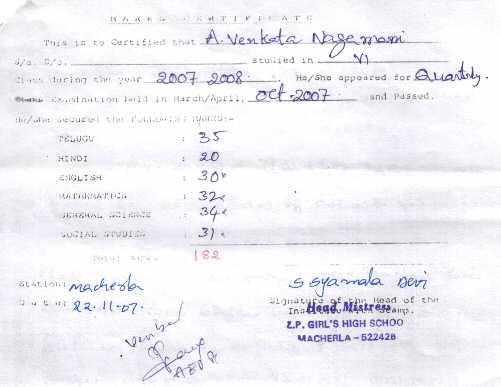 MARKS CERTIFICATE
This is to Certified that A. Venkata Nagamani
S/o. D/o. studied in VI
Class during the year 2007-2008. He/She appeared for Quarterly.
Examination held in March/April, Oct-2007 and Passed.
He/She secured the FOLLOWING MARKS:-
TELUGU : 35
HINDI : 20
ENGLISH : 30
MATHEMATICS : 32
GENERAL SCIENCE : 34
SOCIAL STUDIES : 31
Total Marks 182
Station: Macherla
Date: 22-11-07.
S Syamala Devi
Signature of the Head of the
Institution with Stamp.
Head Mistress
Z.P. GIRL'S HIGH SCHOO
MACHERLA - 522426